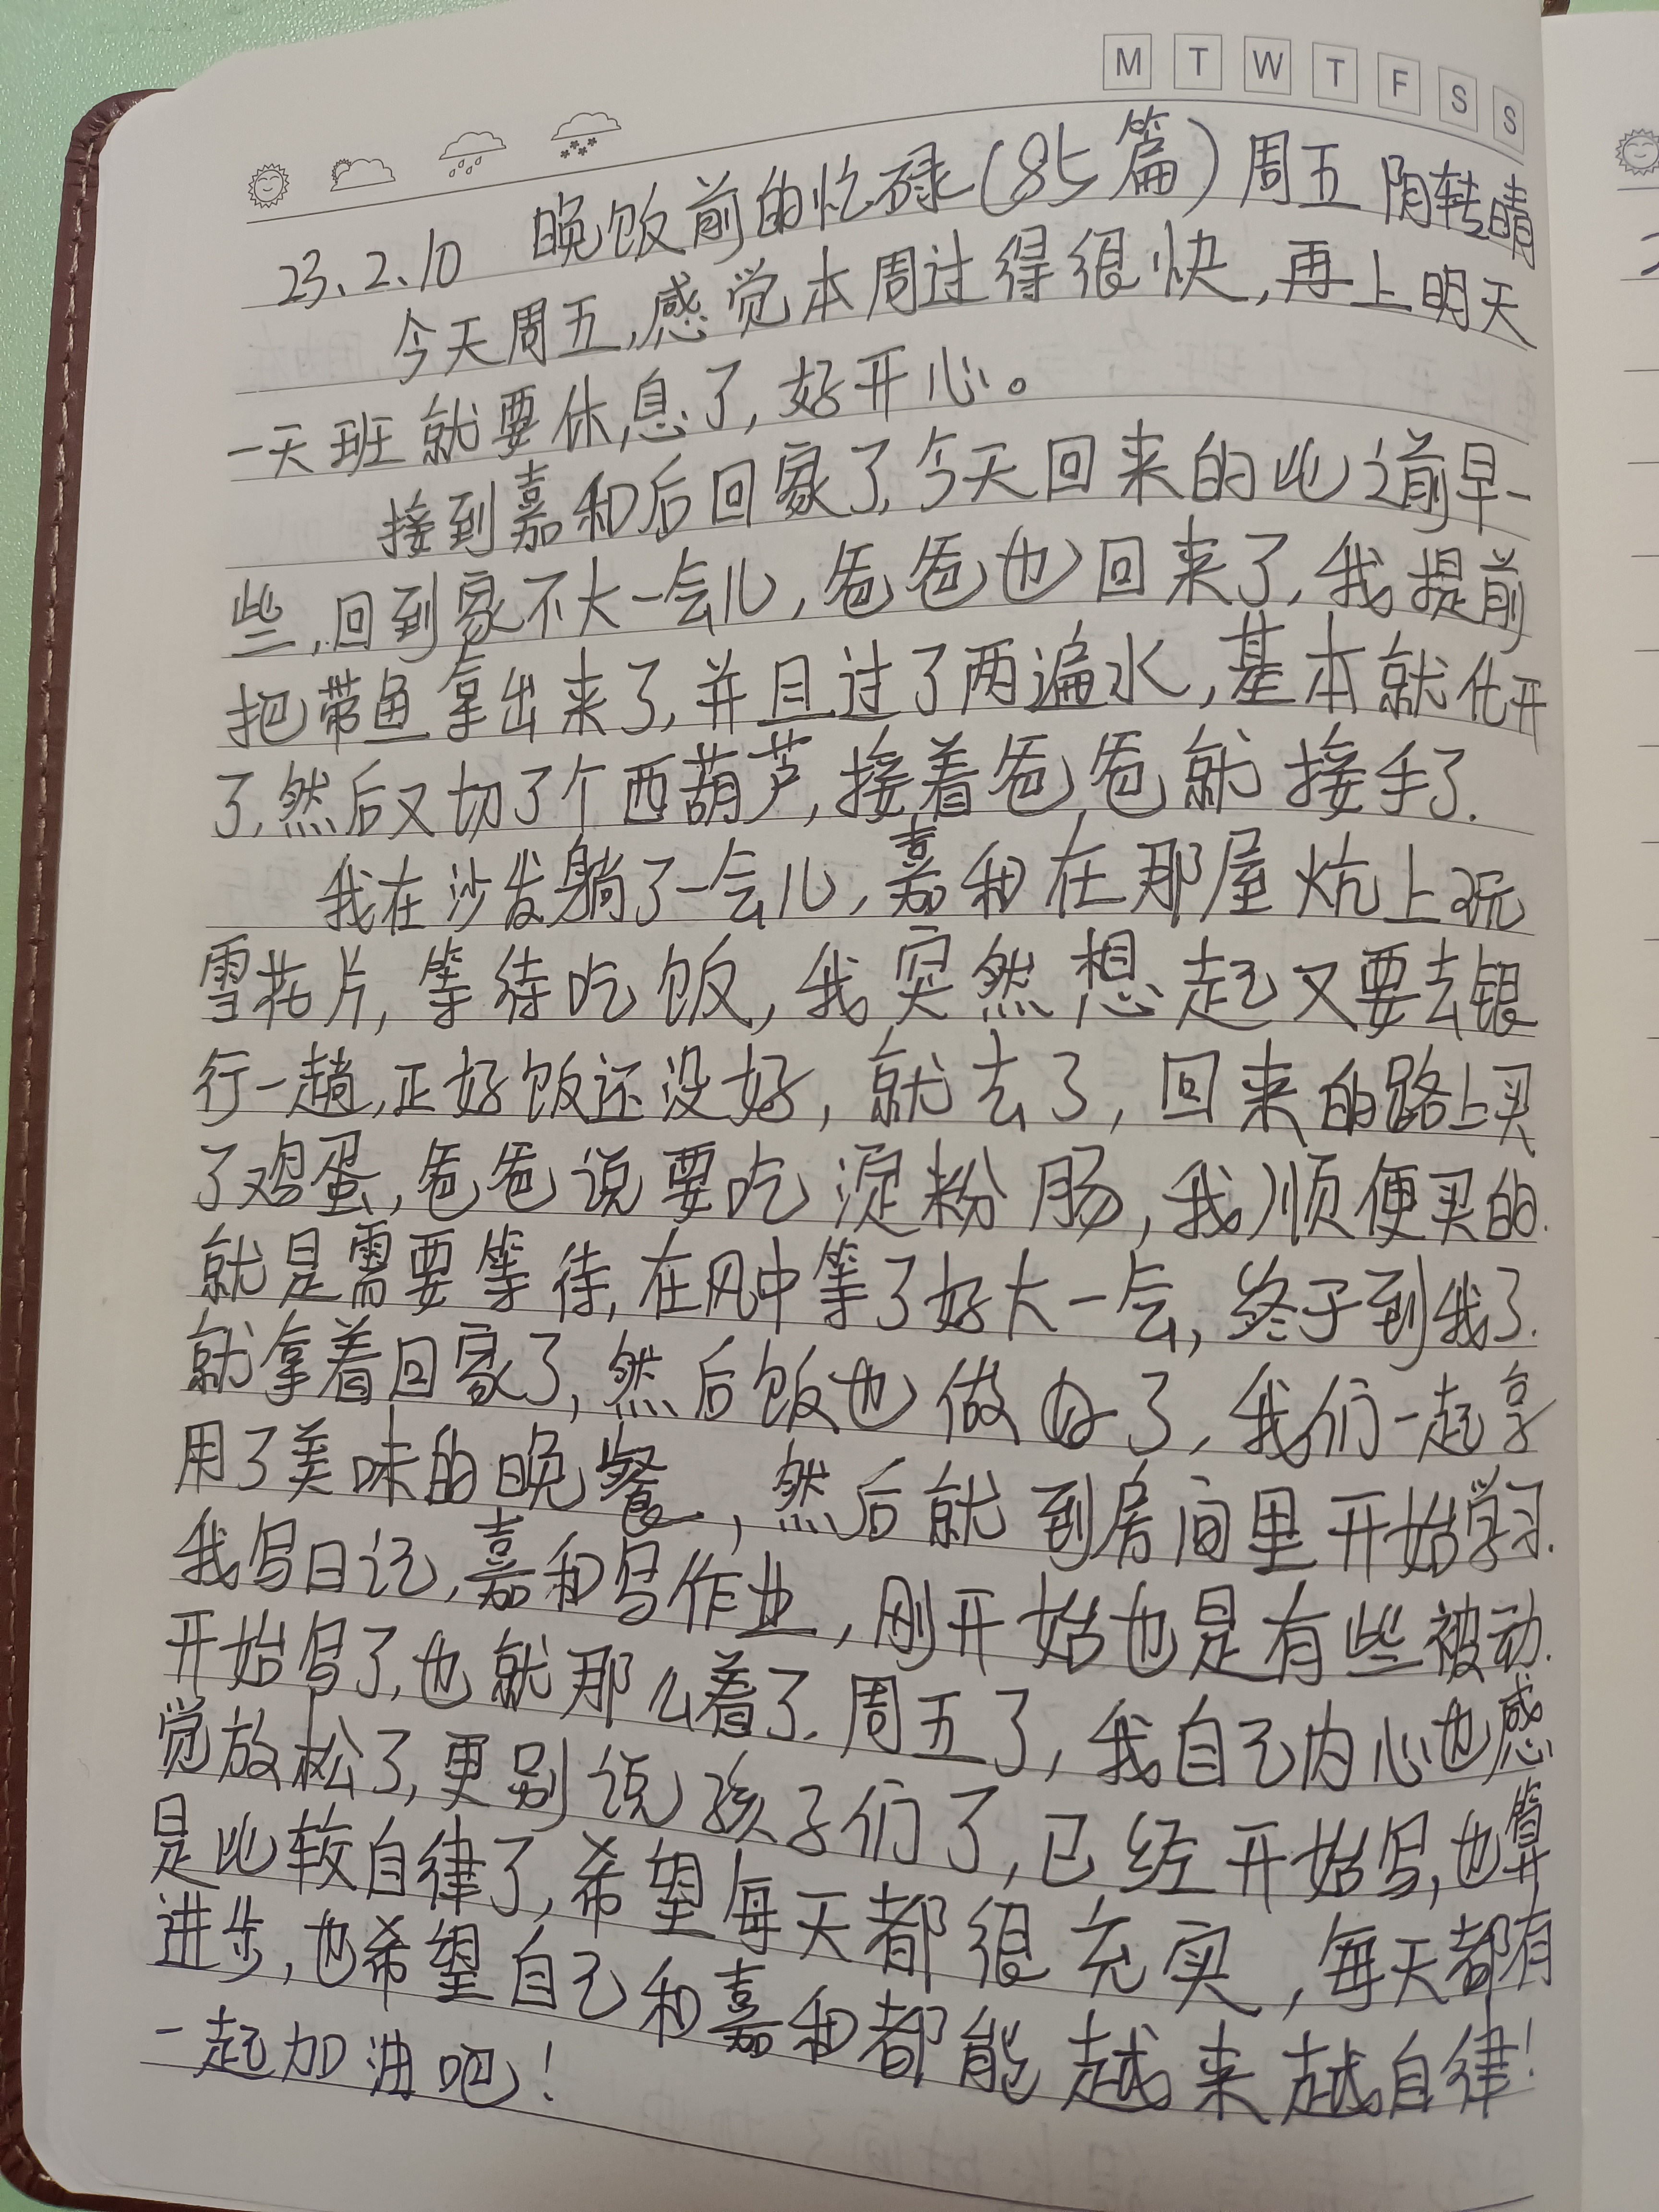 M T W T F S S
23.2.10 晚饭前的忙碌(85篇)周五 阴转晴
今天周五,感觉本周过得很快,再上明天
一天班就要休息了,好开心。
接到嘉和后回家了,今天回来的比之前早一
些,回到家不大一会儿,爸爸也回来了,我提前
把带鱼拿出来了,并且过了两遍水,基本就化开
了,然后又切了个西葫芦,接着爸爸就接手了.
我在沙发躺了一会儿,嘉和在那屋炕上玩
雪花片,等待吃饭,我突然想起又要去银
行一趟,正好饭还没好,就去了,回来的路上买
了鸡蛋,爸爸说要吃淀粉肠,我顺便买的.
就是需要等待,在风中等了好大一会,终于到我了.
就拿着回家了,然后饭也做好了,我们一起享
用了美味的晚餐,然后就到房间里开始学习.
我写日记,嘉和写作业,刚开始也是有些被动.
开始写了,也就那么着了.周五了,我自己内心也感
觉放松了,更别说孩子们了,已经开始写,也算
是比较自律了,希望每天都很充实,每天都有
进步,也希望自己和嘉和都能越来越自律!
一起加油吧!